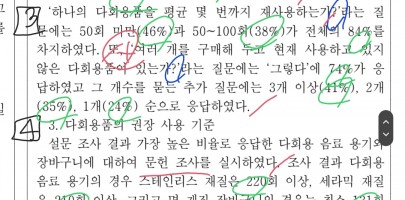 3 '하나의 다회용품을 평균 몇 번까지 재사용하는가?'라는 질
문에는 50회 미만(46%)과 50~100회(38%)가 전체의 84%를
차지하였다. 또 '여러 개를 구매해 두고 현재 사용하고 있지
않은 다회용품이 있는가?'라는 질문에는 '그렇다'에 74%가 응
답하였고 그 개수를 묻는 추가 질문에는 3개 이상(41%), 2개
(35%), 1개(24%) 순으로 응답하였다.
4 3. 다회용품의 권장 사용 기준
설문 조사 결과 가장 높은 비율로 응답한 다회용 음료 용기와
장바구니에 대하여 문헌 조사를 실시하였다. 조사 결과 다회용
음료 용기의 경우 스테인리스 재질은 220회 이상, 세라믹 재질